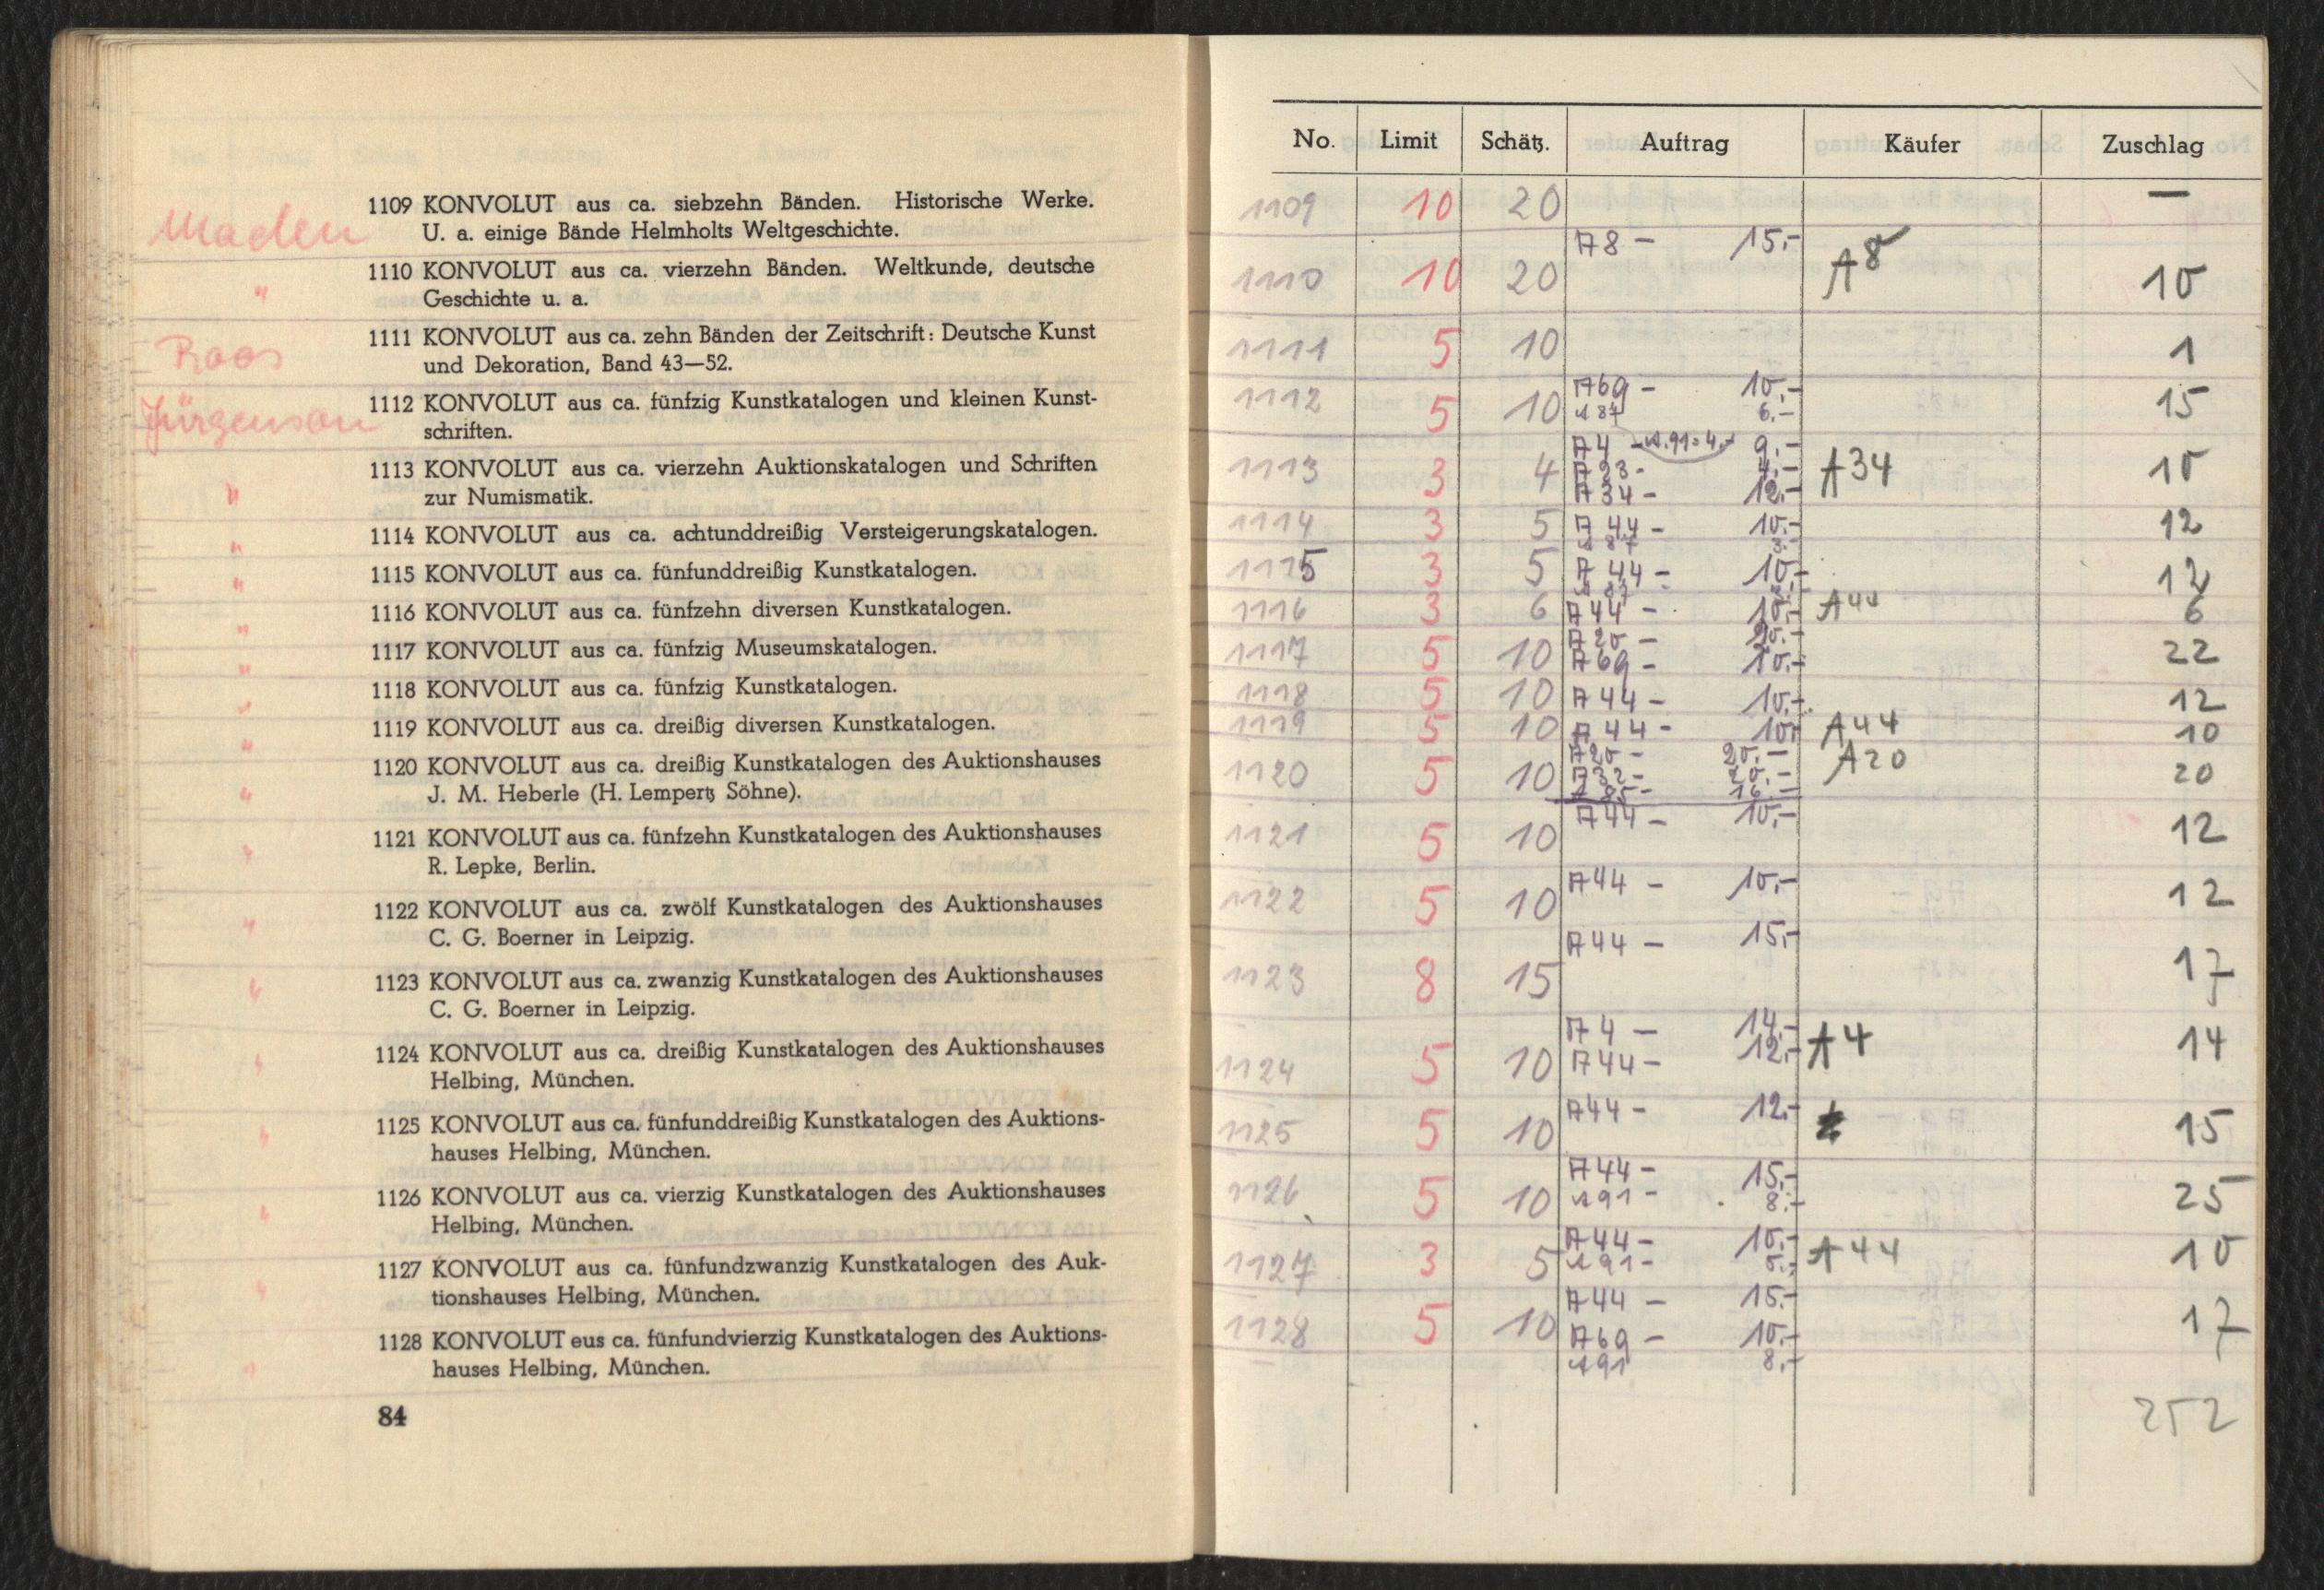 Maden
1109 KONVOLUT aus ca. siebzehn Bänden. Historische Werke.
U. a. einige Bände Helmholts Weltgeschichte.
"
1110 KONVOLUT aus ca. vierzehn Bänden. Weltkunde, deutsche
Geschichte u. a.
Roos
1111 KONVOLUT aus ca. zehn Bänden der Zeitschrift: Deutsche Kunst
und Dekoration, Band 43—52.
Jürgenson
1112 KONVOLUT aus ca. fünfzig Kunstkatalogen und kleinen Kunst-
schriften.
"
1113 KONVOLUT aus ca. vierzehn Auktionskatalogen und Schriften
zur Numismatik.
" 1114 KONVOLUT aus ca. achtunddreißig Versteigerungskatalogen.
" 1115 KONVOLUT aus ca. fünfunddreißig Kunstkatalogen.
" 1116 KONVOLUT aus ca. fünfzehn diversen Kunstkatalogen.
" 1117 KONVOLUT aus ca. fünfzig Museumskatalogen.
" 1118 KONVOLUT aus ca. fünfzig Kunstkatalogen.
" 1119 KONVOLUT aus ca. dreißig diversen Kunstkatalogen.
" 1120 KONVOLUT aus ca. dreißig Kunstkatalogen des Auktionshauses
J. M. Heberle (H. Lempertz Söhne).
" 1121 KONVOLUT aus ca. fünfzehn Kunstkatalogen des Auktionshauses
R. Lepke, Berlin.
" 1122 KONVOLUT aus ca. zwölf Kunstkatalogen des Auktionshauses
C. G. Boerner in Leipzig.
" 1123 KONVOLUT aus ca. zwanzig Kunstkatalogen des Auktionshauses
C. G. Boerner in Leipzig.
" 1124 KONVOLUT aus ca. dreißig Kunstkatalogen des Auktionshauses
Helbing, München.
" 1125 KONVOLUT aus ca. fünfunddreißig Kunstkatalogen des Auktions-
hauses Helbing, München.
" 1126 KONVOLUT aus ca. vierzig Kunstkatalogen des Auktionshauses
Helbing, München.
" 1127 KONVOLUT aus ca. fünfundzwanzig Kunstkatalogen des Auk-
tionshauses Helbing, München.
" 1128 KONVOLUT eus ca. fünfundvierzig Kunstkatalogen des Auktions-
hauses Helbing, München.
84
No. Limit Schätz. Auftrag Käufer Zuschlag
1109 10 20 —
A8 — 15,-
1110 10 20 A8 10
1111 5 10 1
A69 — 10,-
1112 5 10 A87 6,- 15
A4 — A.91=4,- 9,-
1113 3 4 A23- 4,- A34 10
A34 - 12,-
1114 3 5 A44 - 10,- 12
A87 3.-
1115 3 5 A44 - 10,- 12
A87
1116 3 6 A44 - 10,- A44 6
A20 - 20,-
1117 5 10 A69 - 10,- 22
1118 5 10 A44 - 10,- 12
1119 5 10 A44 - 10,- A44 10
A20 - 20,- A20
1120 5 10 A32- 20,- 20
A85- 16,-
A44 - 10,-
1121 5 10 12
1122 5 10 A44 - 10,- 12
A44 - 15,-
1123 8 15 17
A4 — 14,- A4 14
1124 5 10 A44- 12,-
A44 - 12,-
1125 5 10 15
A44 - 15,-
1126 5 10 A91 - 8,- 25
A44 - 10,-
1127 3 5 A91 - 5,- A44 10
A44 - 15,-
1128 5 10 A69 - 10,- 17
A91 8,-
252